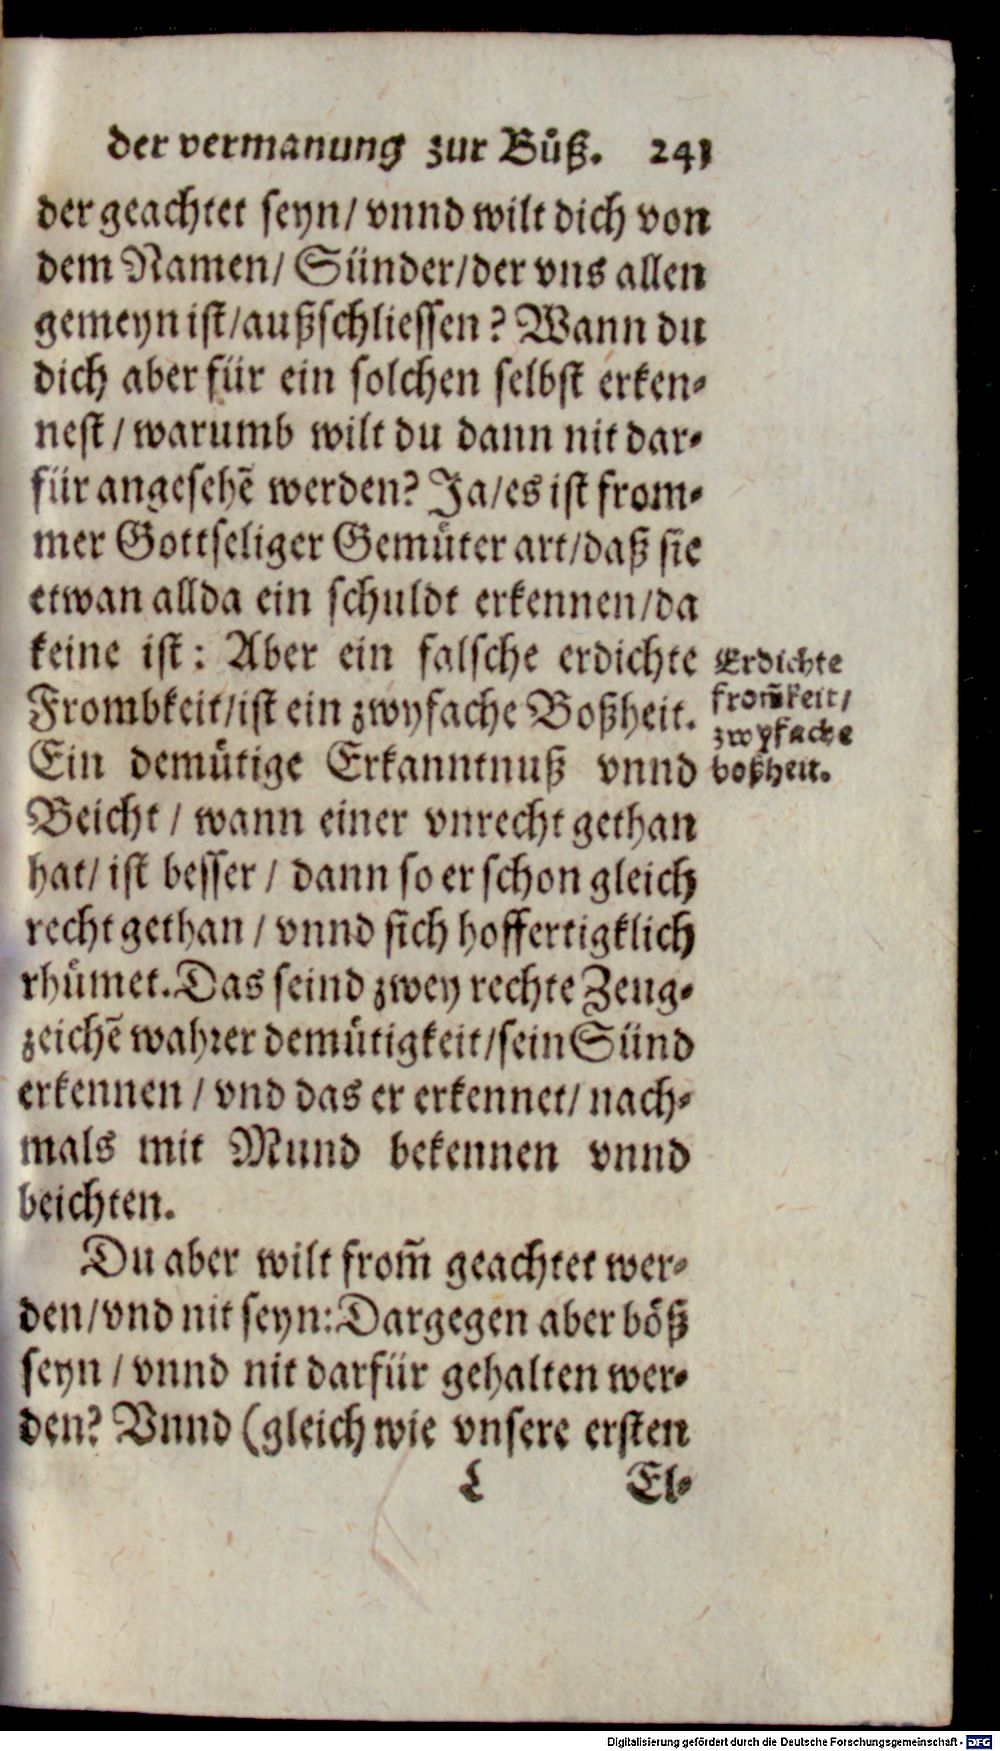 der vermanung zur Buͤß. 241
der geachtet seyn/ vnnd wilt dich von
dem Namen/ Sünder/der vns allen
gemeyn ist/außschliessen? Wann du
dich aber für ein solchen selbst erken-
nest/ warumb wilt du dann nit dar-
für angesehẽ werden? Ja/es ist from-
mer Gottseliger Gemuͤter art/daß sie
etwan allda ein schuldt erkennen/da
keine ist: Aber ein falsche erdichte
Frombkeit/ist ein zwyfache Boßheit.
Ein demuͤtige Erkanntnuß vnnd
Beicht/ wann einer vnrecht gethan
hat/ ist besser/ dann so er schon gleich
recht gethan/ vnnd sich hoffertigklich
rhuͤmet. Das seind zwey rechte Zeug-
zeichẽ wahrer demuͤtigkeit/sein Sünd
erkennen/ vnd das er erkennet/ nach-
mals mit Mund bekennen vnnd
beichten.
Du aber wilt from̃ geachtet wer-
den/vnd nit seyn: Dargegen aber boͤß
seyn/ vnnd nit darfür gehalten wer-
den? Vnnd (gleich wie vnsere ersten
L El-
Erdichte
from̃keit/
zwyfache
boßheit.
Digitalisierung gefördert durch die Deutsche Forschungsgemeinschaft - DFG